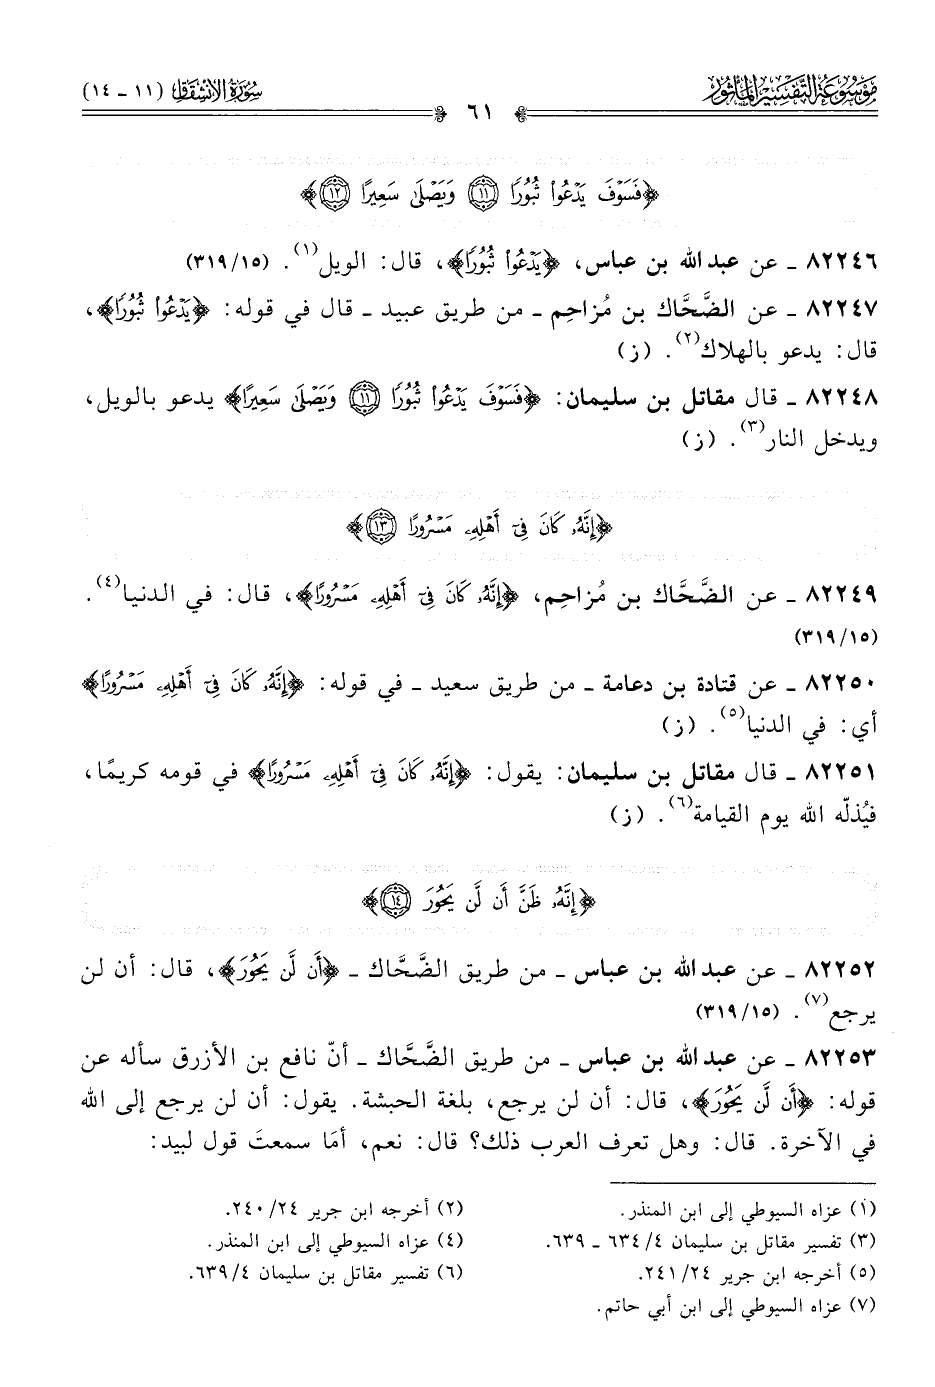 موسوعة التفسير المأثور
سورة الانشقاق (١١ - ١٤)
٦١
﴿فَسَوْفَ يَدْعُوا۟ ثُبُورًا ۝١١ وَيَصْلَىٰ سَعِيرًا ۝١٢﴾
٨٢٢٤٦ ـ عن عبد الله بن عباس، ﴿يَدْعُوا۟ ثُبُورًا﴾، قال: الويل(١). (٣١٩/١٥)
٨٢٢٤٧ ـ عن الضَّحَّاك بن مُزاحِم ـ من طريق عبيد ـ قال في قوله: ﴿يَدْعُوا۟ ثُبُورًا﴾،
قال: يدعو بالهلاك(٢). (ز)
٨٢٢٤٨ ـ قال مقاتل بن سليمان: ﴿فَسَوْفَ يَدْعُوا۟ ثُبُورًا ۝١١ وَيَصْلَىٰ سَعِيرًا﴾ يدعو بالويل،
ويدخل النار(٣). (ز)
﴿إِنَّهُۥ كَانَ فِىٓ أَهْلِهِۦ مَسْرُورًا ۝١٣﴾
٨٢٢٤٩ ـ عن الضَّحَّاك بن مُزاحِم، ﴿إِنَّهُۥ كَانَ فِىٓ أَهْلِهِۦ مَسْرُورًا﴾، قال: في الدنيا(٤).
(٣١٩/١٥)
٨٢٢٥٠ ـ عن قتادة بن دعامة ـ من طريق سعيد ـ في قوله: ﴿إِنَّهُۥ كَانَ فِىٓ أَهْلِهِۦ مَسْرُورًا﴾
أي: في الدنيا(٥). (ز)
٨٢٢٥١ ـ قال مقاتل بن سليمان: يقول: ﴿إِنَّهُۥ كَانَ فِىٓ أَهْلِهِۦ مَسْرُورًا﴾ في قومه كريمًا،
فيُذلّه الله يوم القيامة(٦). (ز)
﴿إِنَّهُۥ ظَنَّ أَن لَّن يَحُورَ ۝١٤﴾
٨٢٢٥٢ ـ عن عبد الله بن عباس ـ من طريق الضَّحَّاك ـ ﴿أَن لَّن يَحُورَ﴾، قال: أن لن
يرجع(٧). (٣١٩/١٥)
٨٢٢٥٣ ـ عن عبد الله بن عباس ـ من طريق الضَّحَّاك ـ أنّ نافع بن الأزرق سأله عن
قوله: ﴿أَن لَّن يَحُورَ﴾، قال: أن لن يرجع، بلغة الحبشة. يقول: أن لن يرجع إلى الله
في الآخرة. قال: وهل تعرف العرب ذلك؟ قال: نعم، أمَا سمعتَ قول لبيد:
(١) عزاه السيوطي إلى ابن المنذر.
(٢) أخرجه ابن جرير ٢٤/٢٤٠.
(٣) تفسير مقاتل بن سليمان ٤/ ٦٣٤ ـ ٦٣٩.
(٤) عزاه السيوطي إلى ابن المنذر.
(٥) أخرجه ابن جرير ٢٤/٢٤١.
(٦) تفسير مقاتل بن سليمان ٤/٦٣٩.
(٧) عزاه السيوطي إلى ابن أبي حاتم.